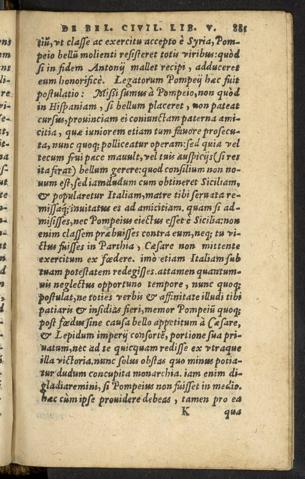 DE BEL. CIVIL. LIB. V. 881
tiũ, vt classe ac exercitu accepto è Syria, Pom-
peio bellũ molienti resisteret totis viribus: quòd
si in fidem Antonij mallet recipi, adduceret
eum honorificè. Legatorum Pompeij hæc fuit
postulatio: Missi sumus à Pompeio, non quòd
in Hispaniam, si bellum placeret, non pateat
cursus, prouinciam ei coniunctam paterna ami-
citia, quæ iuniorem etiam tum fauore prosecu-
ta, nunc quoq; polliceatur operam: sed quia vel
tecum frui pace mauult, vel tuis auspicijs (si res
ita ferat) bellum gerere: quod consilium non no-
uum est, sed iamdudum cum obtineret Siciliam,
& popularetur Italiam, matre tibi seruata re-
missaq; inuitatus et ad amicitiam, quam si ad-
misisses, nec Pompeius eiectus esset è Sicilia: non
enim classem præbuisses contra eum, neq; tu vi-
ctus fuisses in Parthia, Cæsare non mittente
exercitum ex fœdere. imò etiam Italiam sub
tuam potestatem redegisses. attamen quantum-
uis neglectus opportuno tempore, nunc quoq;
postulat, ne toties verbis & affinitate illudi tibi
patiaris & insidias fieri, memor Pompeiũ quoq;
post fœdus sine causa bello appetitum à Cæsare,
& Lepidum imperij consortẽ, portione sua pri-
uatum, nec ad te quicquam redisse ex vtraque
illa victoria. nunc solus obstas quo minus potia-
tur dudum concupita monarchia. iam enim di-
gladiaremini, si Pompeius non fuisset in medio.
hæc cùm ipse prouidere debeas, tamen pro ea
K qua